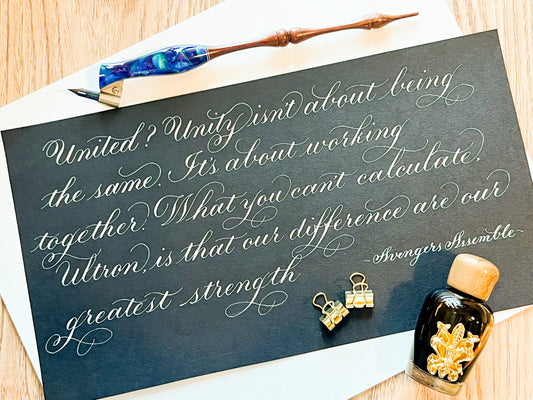 United? Unity isn't about being
the same. It's about working
together. What you can't calculate,
Ultron, is that our difference are our
greatest strength
~Avengers Assemble~